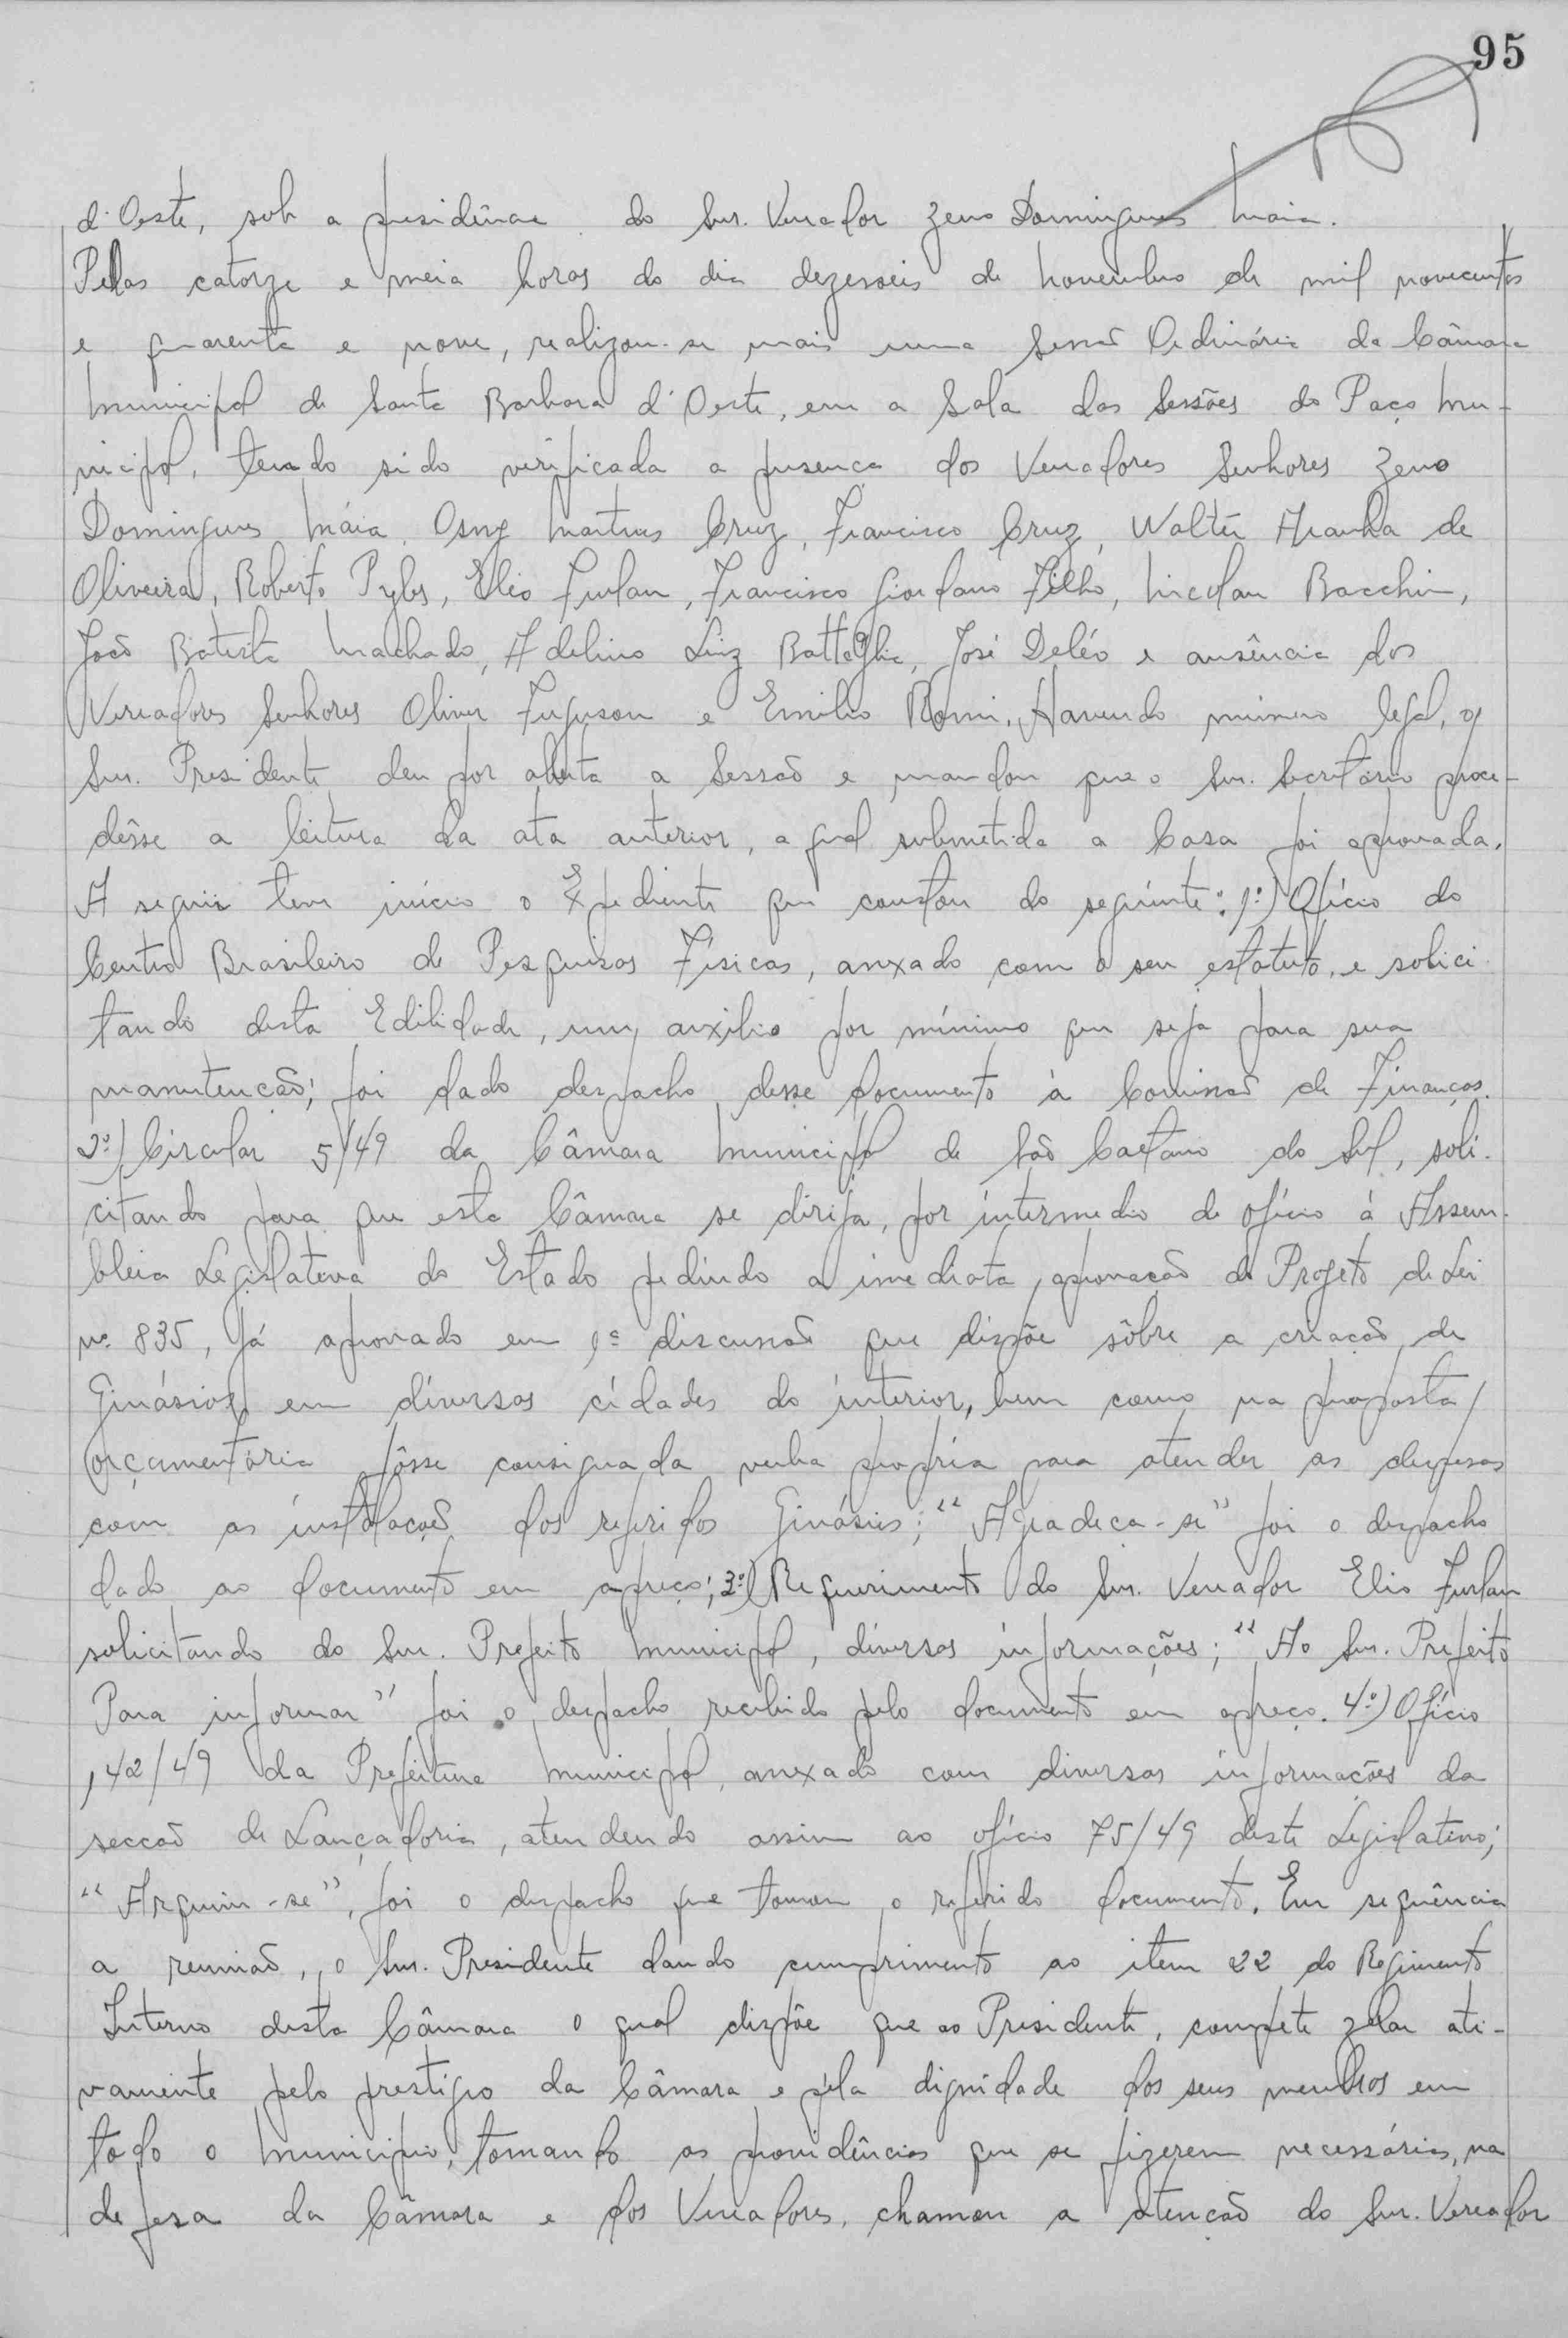 95
d'Oeste, sob a presidência do Snr. Vereador Zeno Domingues Maia.
Pelas catorze e meia horas do dia dezesseis de novembro de mil novecentos
e quarenta e nove, realizou-se mais uma Sessão Ordinária da Câmara
Municipal de Santa Barbara d'Oeste, em a Sala das Sessões do Paço Mu-
nicipal, tendo sido verificada a presença dos Vereadores Senhores Zeno
Domingues Máia, Osny Martins Cruz, Francisco Cruz, Walter Aranha de
Oliveira, Roberto Pyles, Elio Furlan, Francisco Giordano Filho, Nicolau Bacchin,
João Batista Machado, Adelino Luiz Battaglia, José Deléo e ausência dos
Vereadores Senhores Oliver Ferguson e Emilio Romi. Havendo número legal, o
Snr. Presidente deu por aberta a Sessão e mandou que o Snr. Secretário proce-
dêsse a leitura da ata anterior, a qual submetida a Casa foi aprovada.
A seguir teve início o Expediente que constou do seguinte: 1º) Ofício do
Centro Brasileiro de Pesquisas Físicas, anexado com o seu estatuto, e solici-
tando desta Edilidade, um auxílio por mínimo que seja para sua
manutenção; foi dado despacho desse documento à Comissão de Finanças.
2º) Circular 5/49 da Câmara Municipal de São Caetano do Sul, soli-
citando para que esta Câmara se dirija, por intermedio de ofício à Assem-
bleia Legislativa do Estado pedindo a imediata aprovação do Projeto de Lei
nº 835, já aprovado em 1ª discussão que dispõe sôbre a criação de
Ginásios em diversas cidades do interior, bem como na proposta
orçamentária fôsse consignada verba própria para atender as despesas
com as instalação dos referidos Ginásios; "Agradeça-se" foi o despacho
dado ao documento em apreço; 3º) Requerimento do Snr. Vereador Elio Furlan
solicitando do Snr. Prefeito Municipal, diversas informações; "Ao Snr. Prefeito
Para informar" foi o despacho recebido pelo documento em apreço. 4º) Ofício
142/49 da Prefeitura Municipal, anexado com diversas informações da
secção de Lançadoria, atendendo assim ao ofício 75/49 deste Legislativo;
"Arquive-se", foi o despacho que tomou o referido documento. Em sequência
a reunião, o Snr. Presidente dando cumprimento ao item 22 do Regimento
Interno desta Câmara o qual dispõe que ao Presidente, compete zelar ati-
vamente pelo prestígio da Câmara e pela dignidade dos seus membros em
todo o Municipio, tomando as providências que se fizerem necessárias, na
defesa da Câmara e dos Vereadores, chamou a atenção do Snr. Vereador